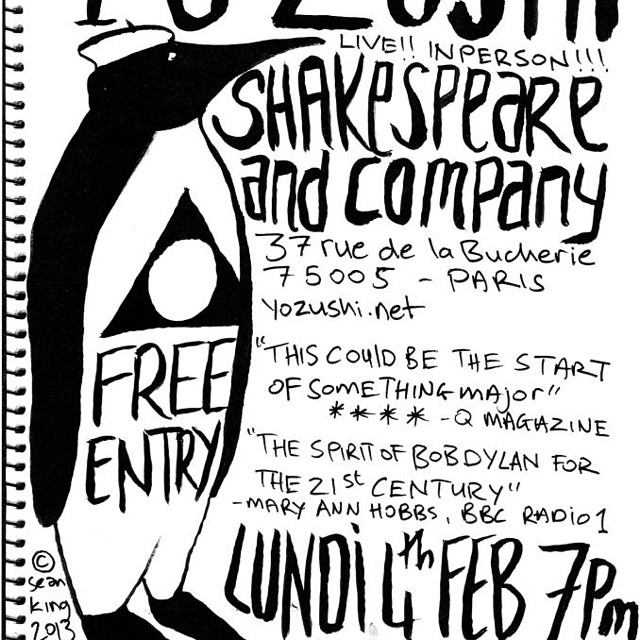 YO ZUSHI
LIVE!! IN PERSON!!!
SHAKESPEARE
and company
37 rue de la Bucherie
75005 - PARIS
yozushi.net
"THIS COULD BE THE START
OF SOMETHING major"
**** - Q MAGAZINE
"THE SPIRIT OF BOB DYLAN FOR
THE 21st CENTURY"
- MARY ANN HOBBS, BBC RADIO 1
LUNDI 4th FEB 7Pm
FREE
ENTRY
© sean
king
2013